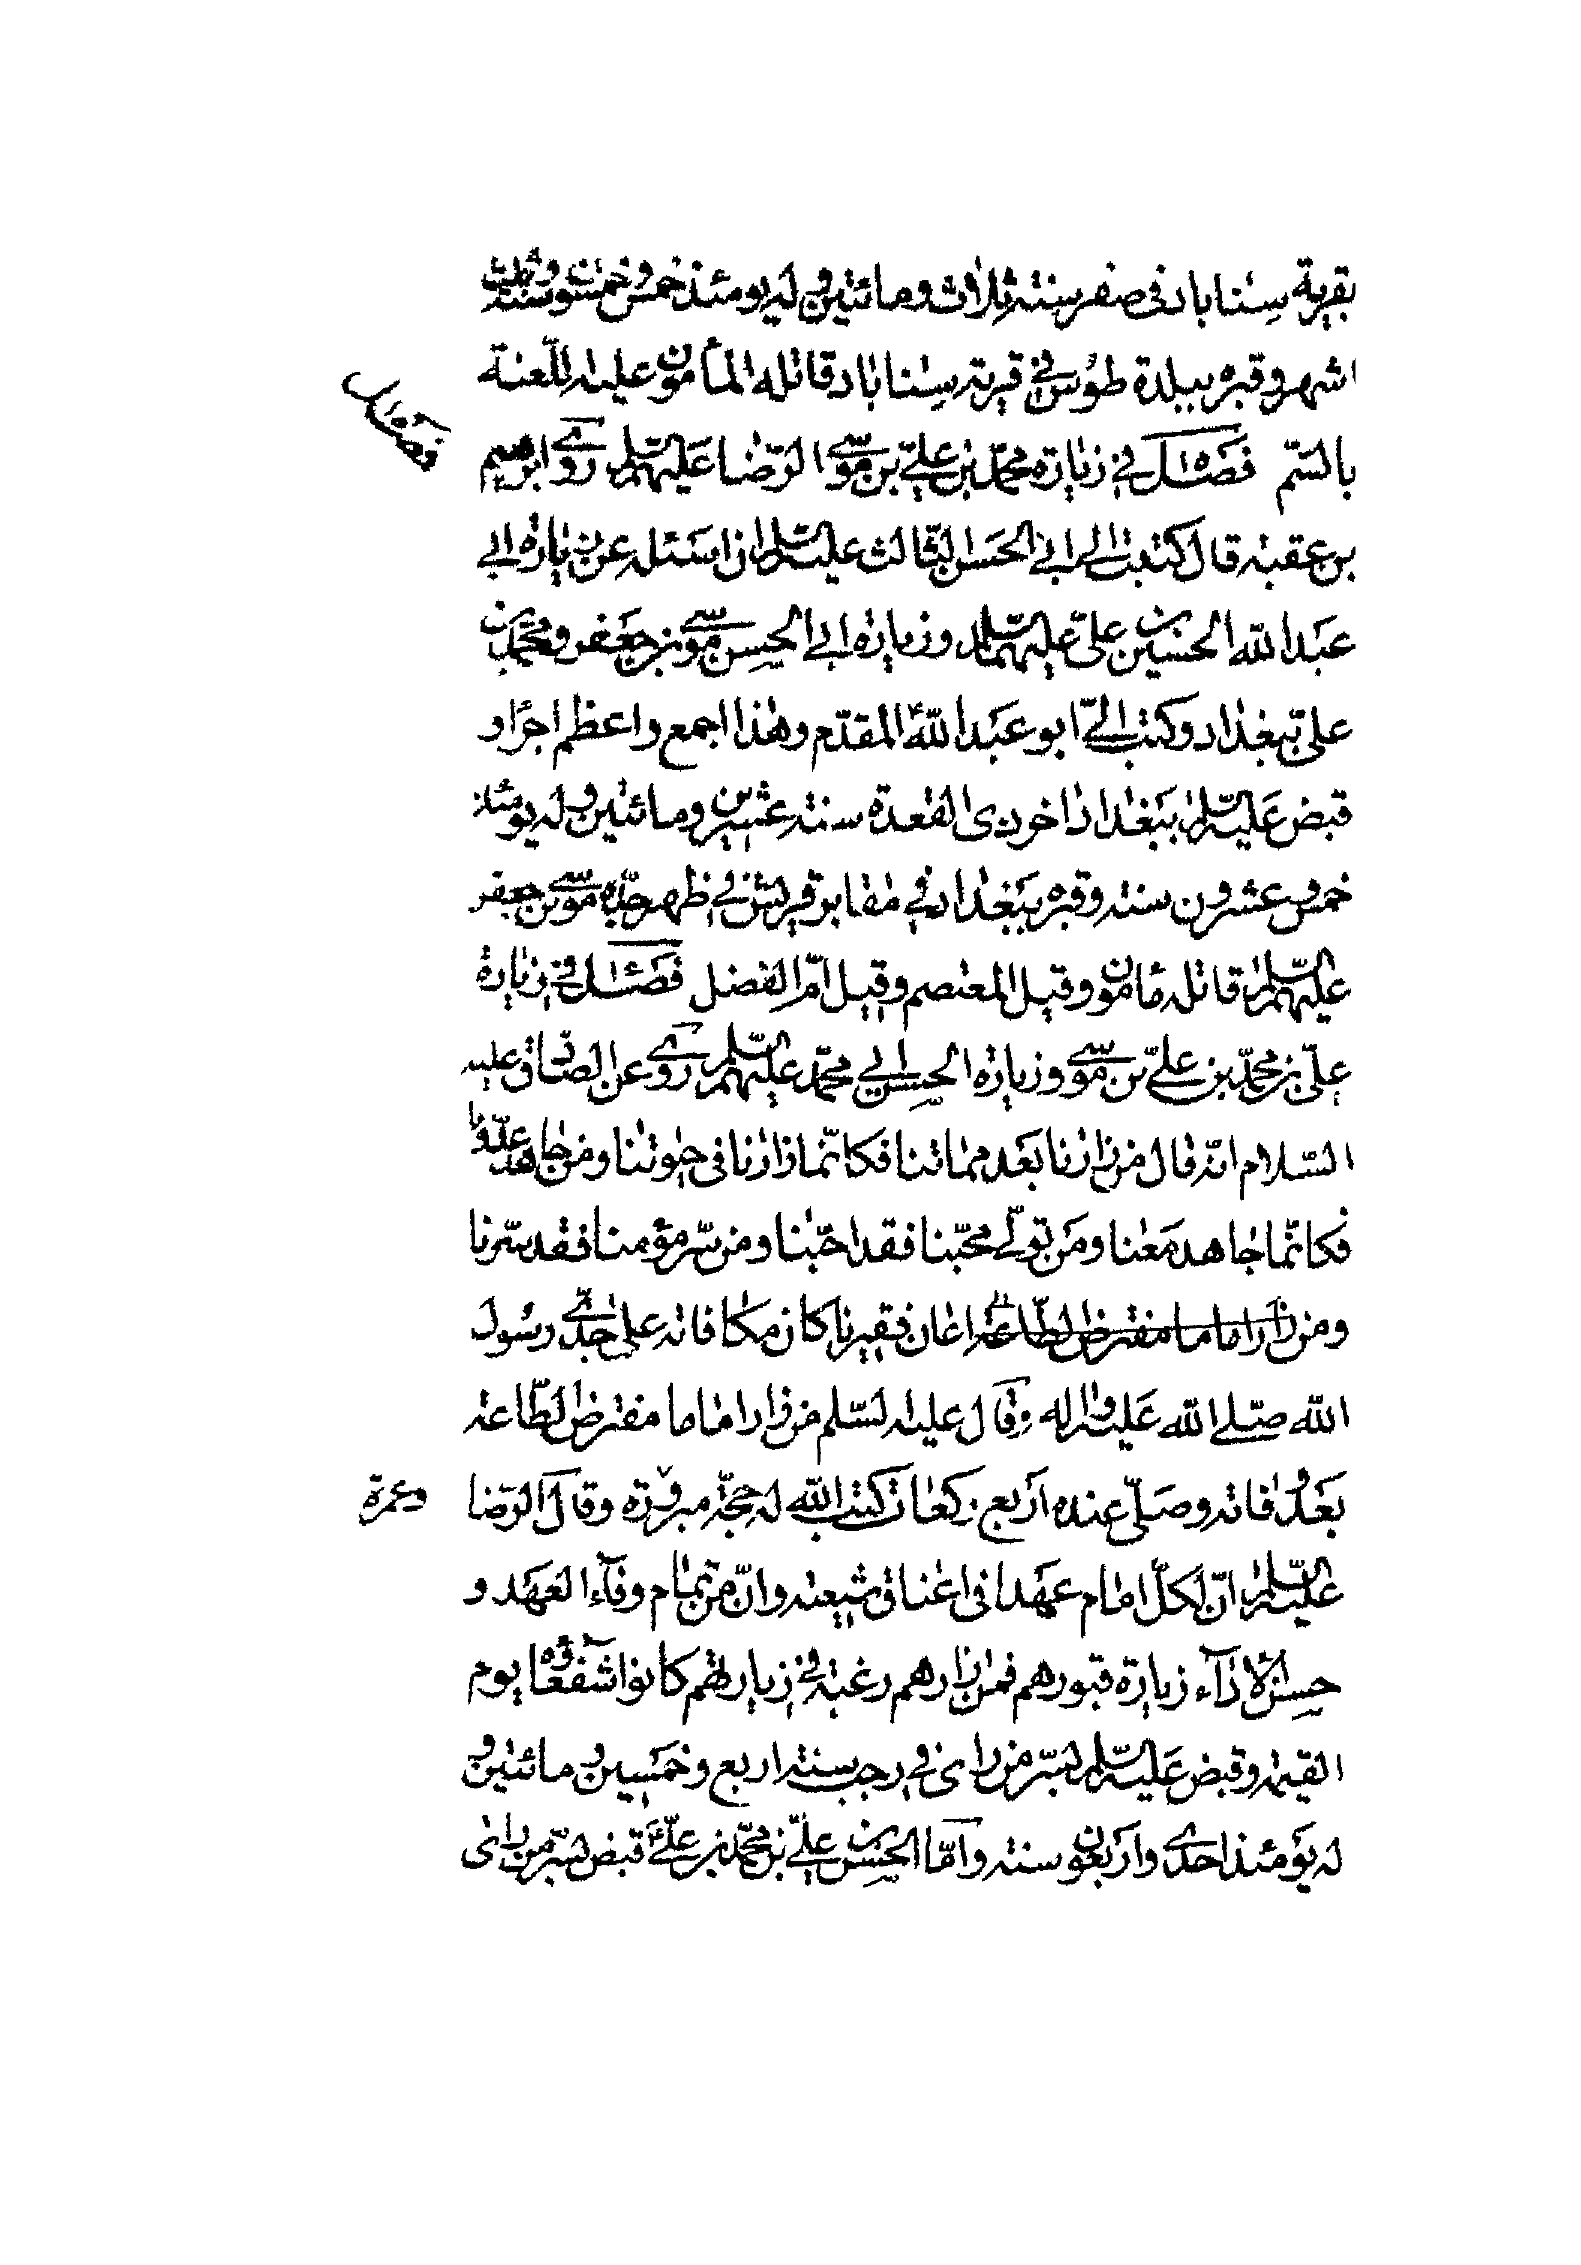 بقرية سناباد فى صفر سنة ثلاث ومائتين وله يومئذ خمس وخمسون سنة وستة
اشهر وقبره ببلدة طوس في قرية سناباد قاتله المأمون عليه اللعنة
بالسّم فصل في زيارة محمّد بن علي بن موسى الرّضا عليهم السّلم روى ابرهيم
بن عقبه قال كتبت الى ابي الحسن الثالث عليه السّلم ان اسئله عن زيارة ابي
عبد الله الحسين بن علىّ عليهما السّلم وزيارة ابي الحسن موسى بن جعفر ومحمّد بن
على ببغداد وكتب الىّ ابو عبد الله المقدّم وهذا اجمع واعظم اجرًا و
قبض عليه السّلم ببغداد اخر ذى القعدة سنة عشرين ومائتين وله يومئذ
خمس وعشرون سنة وقبره ببغداد في مقابر قريش في ظهر جدّه موسى بن جعفر
عليهم السّلم قاتله مأمون وقيل المعتصم وقيل امّ الفضل فصل في زيارة
علىّ بن محمّد بن علىّ بن موسى وزيارة الحسن ابي محمّد عليهم السّلم روى عن الصّادق عليه
السّلام انّه قال من زارنا بعد مماتنا فكانّما زارنا فى حيوتنا ومن جاهد عدوّنا
فكانّما جاهد معنا ومن تولّى محبّنا فقد احبّنا ومن سّر مؤمنا فقد سّرنا
ومن زار اماما مفترض الطّاعة اعان فقيرنا كان مكافاته على جدّى رسول
الله صلّى الله عليه واله وقال عليه السّلم من زار اماما مفترض الطّاعة
بعد وفاته وصلّى عنده اربع ركعات كتب الله له حجّة مبرورة وقال الرّضا
وعمرة
عليه السّلم انّ لكلّ امام عهدا فى اعناق شيعته وانّ من تمام وفآء العهد و
حسن الادآء زيارة قبورهم فمن زارهم رغبة في زيارتهم كانوا شفعآؤه يوم
القيمة وقبض عليه السّلم بسّر من راى في رجب سنة اربع وخمسين ومائتين و
له يومئذ احدى واربعون سنة وامّا الحسن بن علىّ بن محمّد بن علىّ قبض بسّر من راى